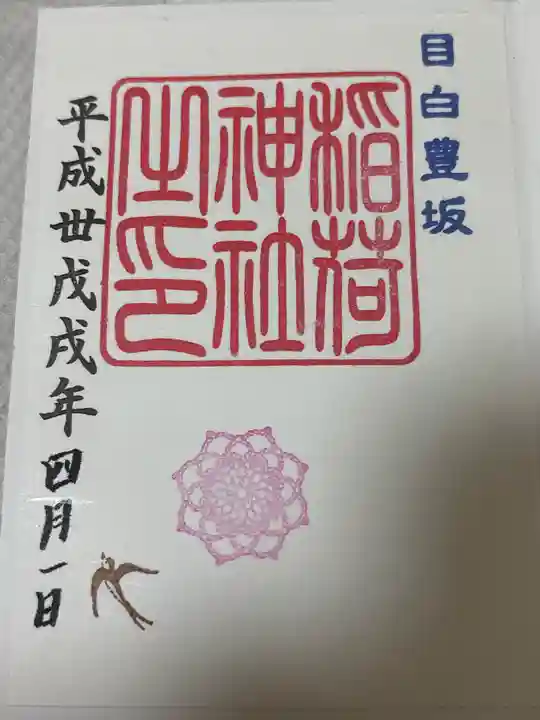 目白豊坂
稻荷
神社
之印
平成丗戊戌年四月一日